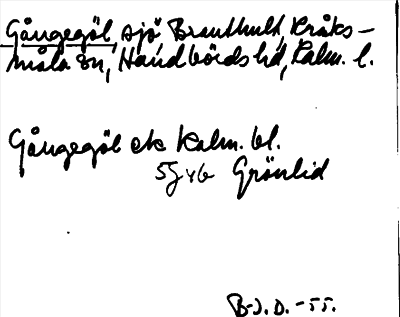 Gångegöl, sjö Branthult, Kråks-
måla sn, Handbörds hd, Kalm. l.
Gångegöl ek Kalm. bl.
5g46 Grönlid
B.J.D. -55.